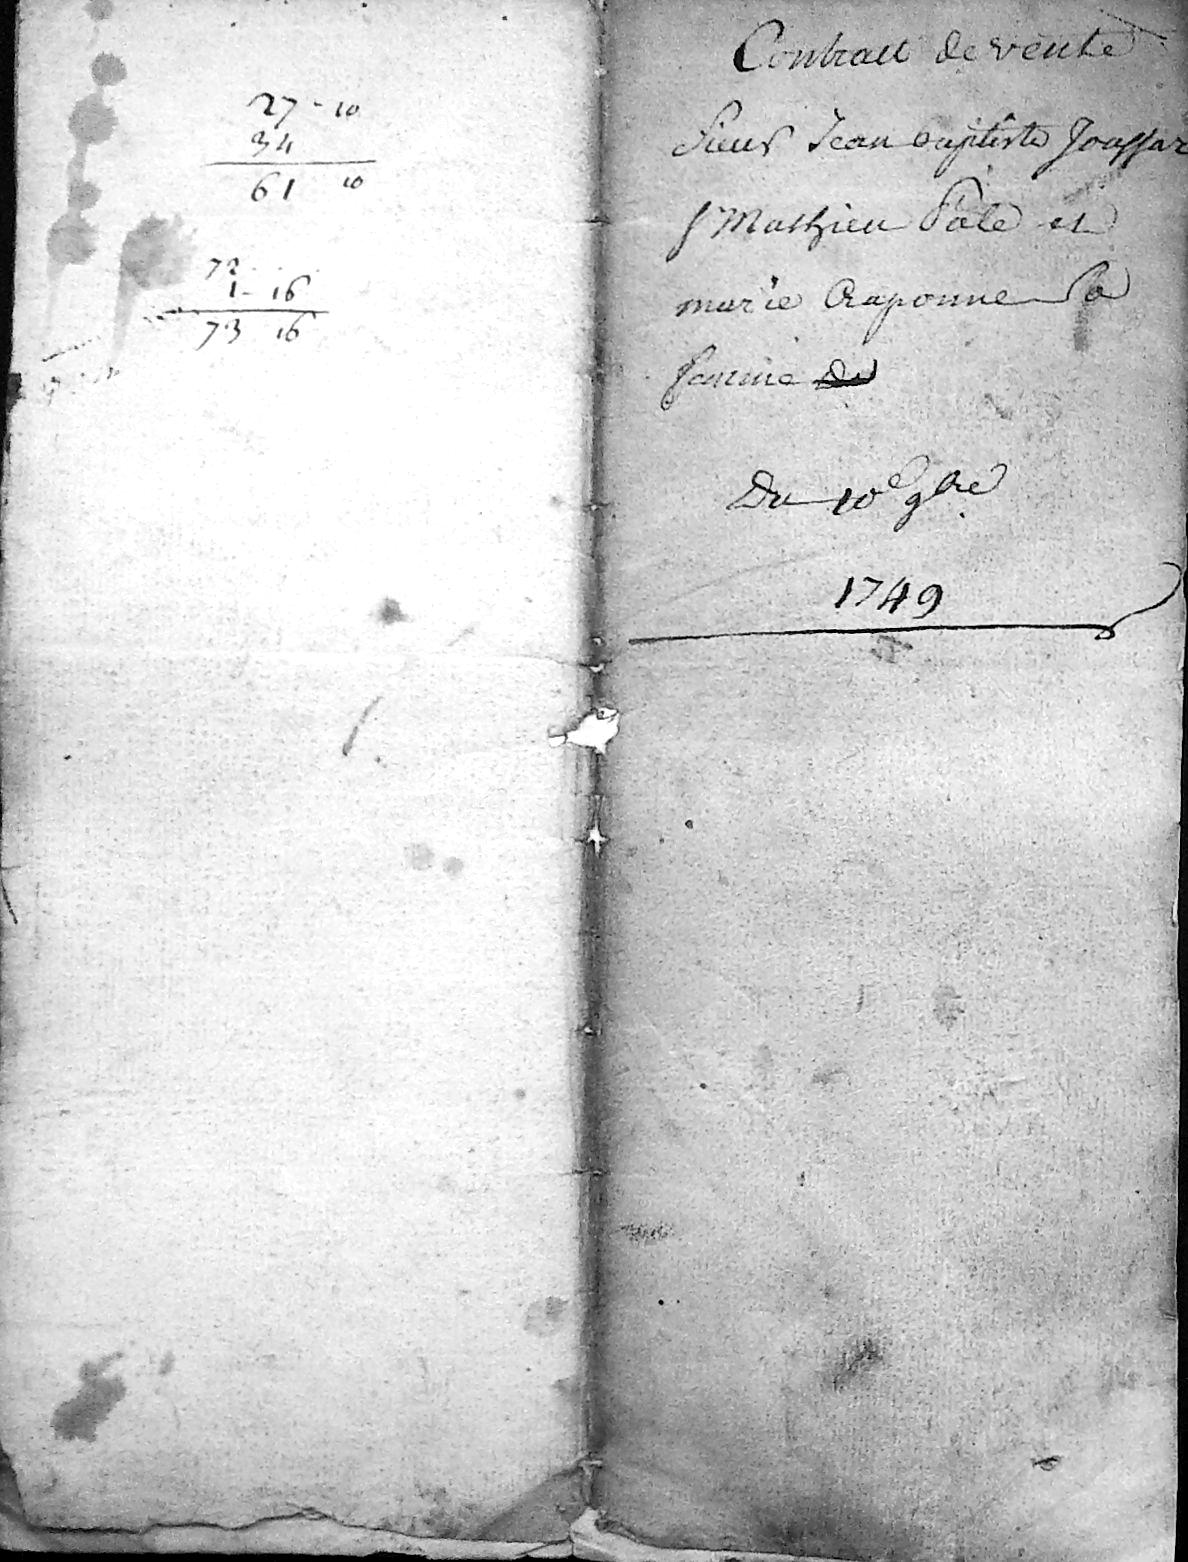 27 - 10
34
61 10
72 . .
1 - 16
73 16
Contract de vente
Sieur Jean baptiste
Mathieu et
marie Craponne Sa
famme du
Du 10e 9bre
1749